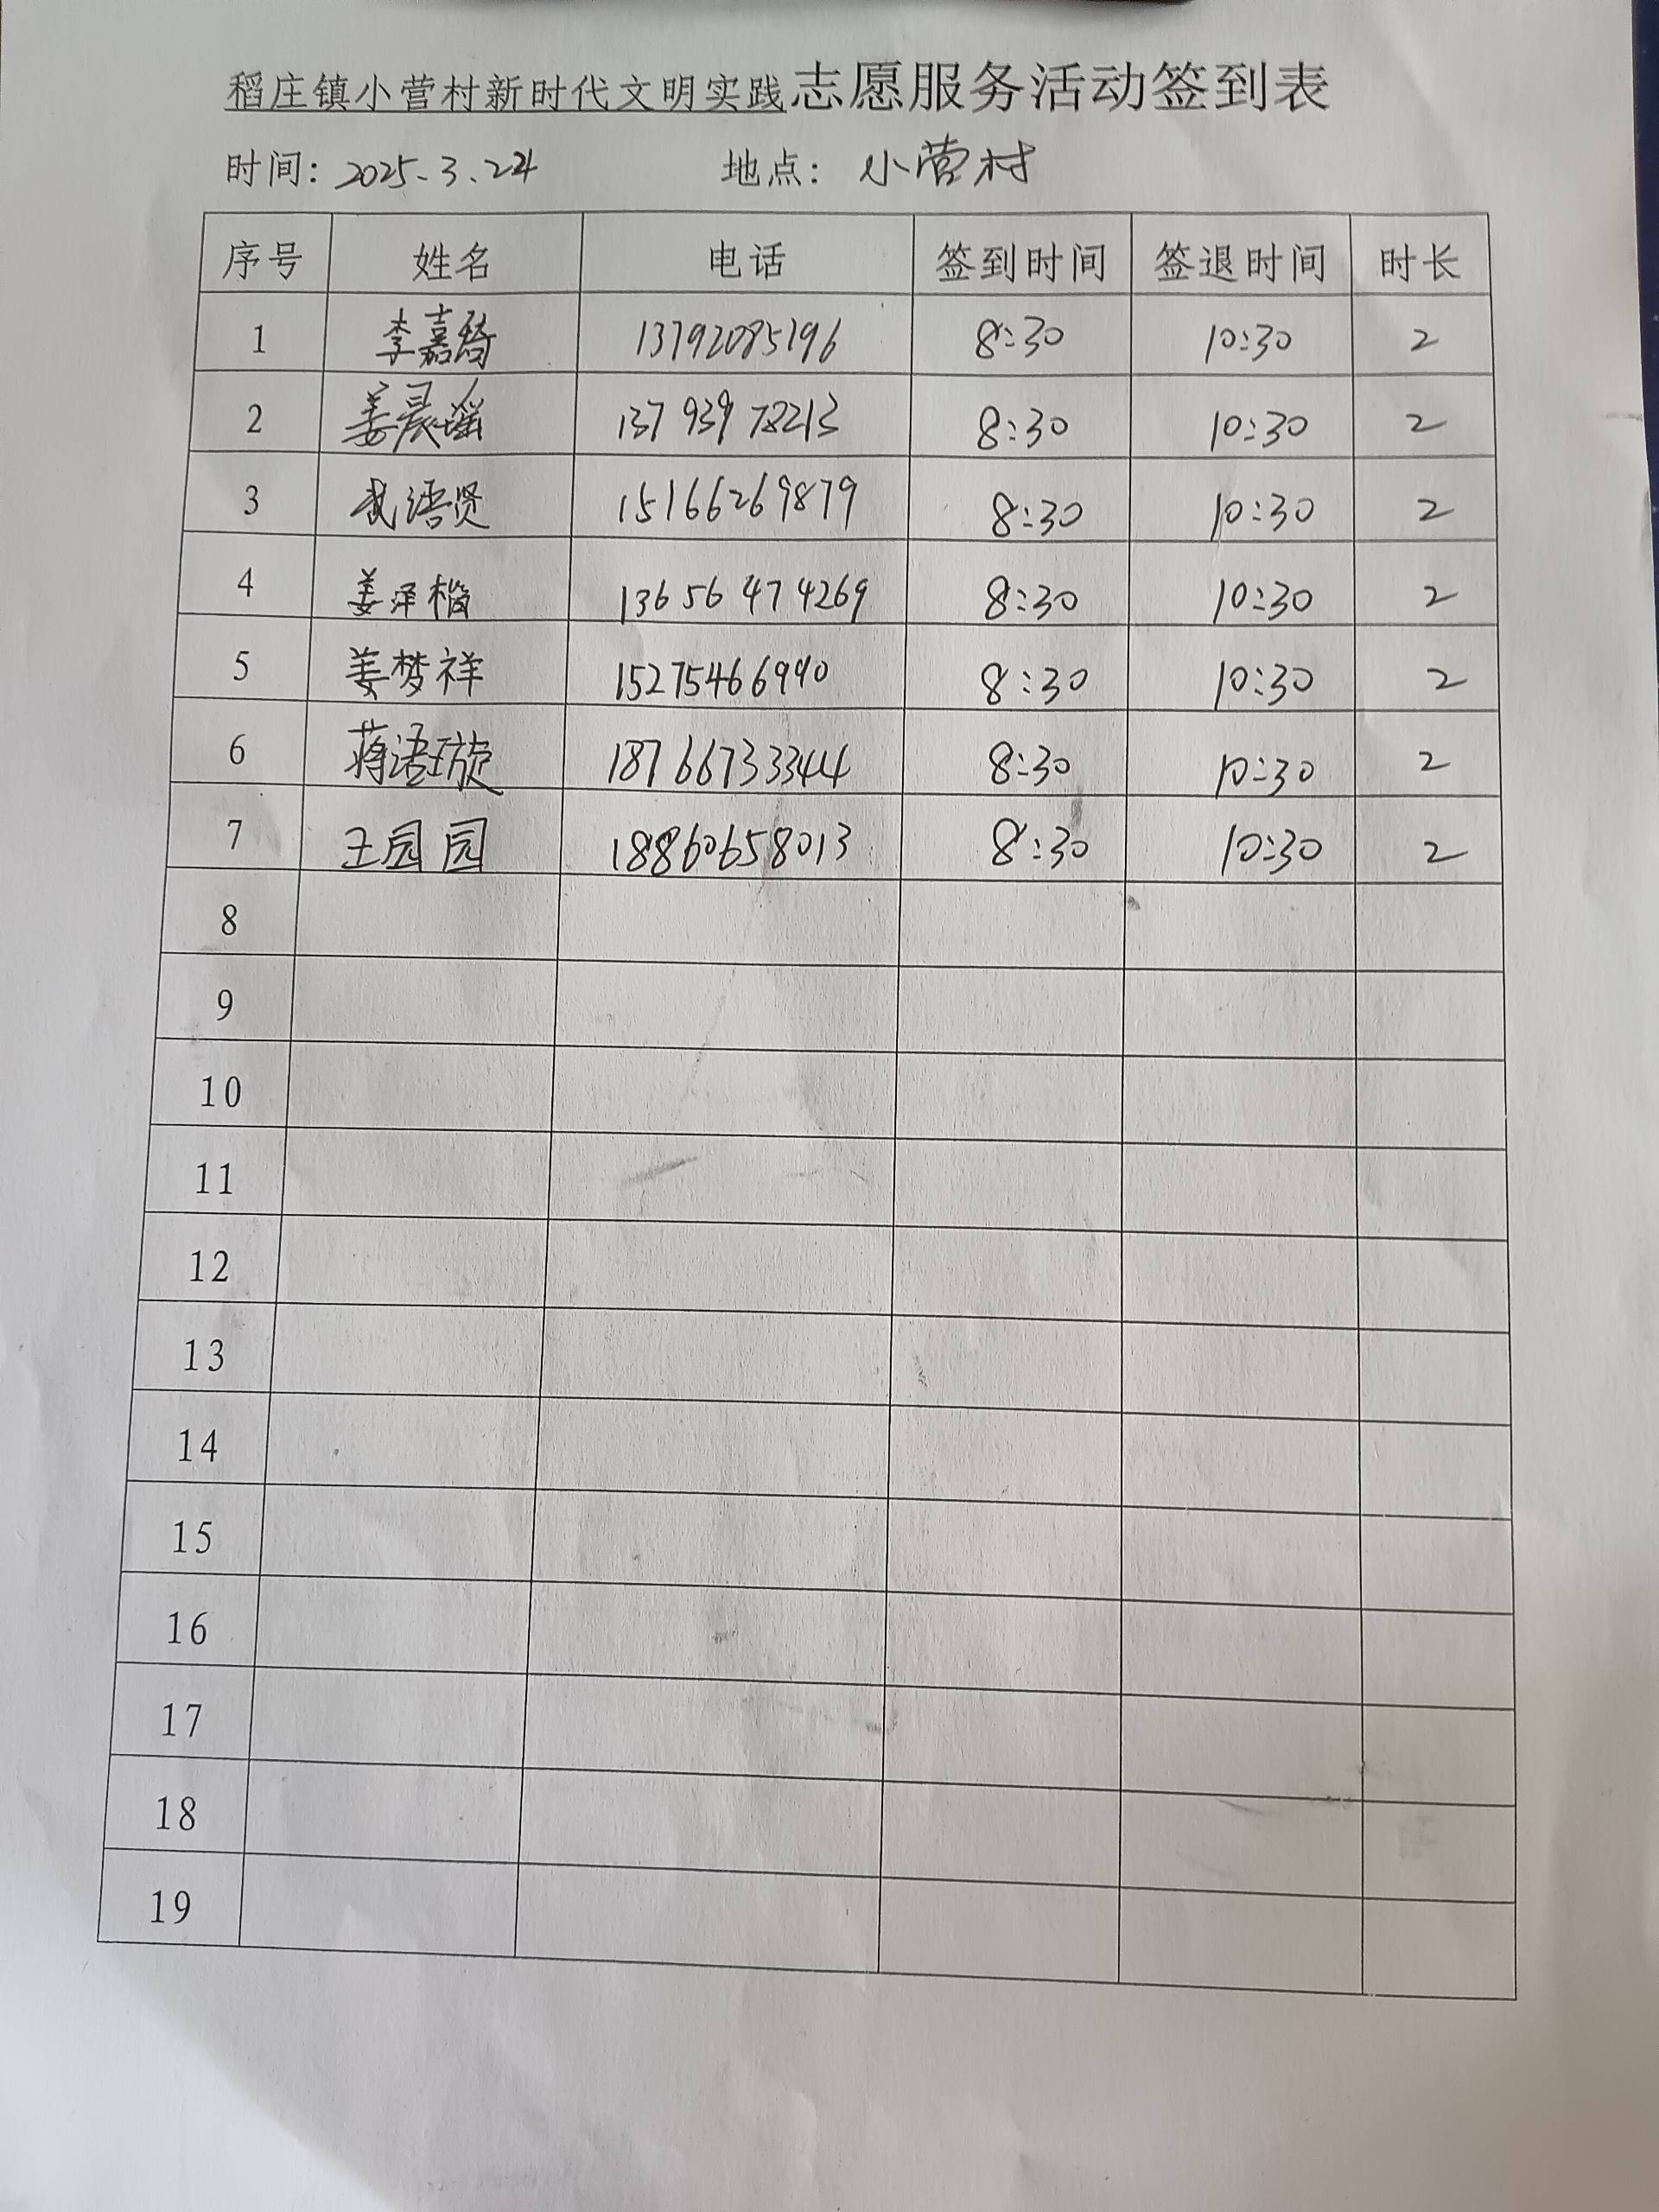 稻庄镇小营村新时代文明实践志愿服务活动签到表
时间: 2025.3.24 地点: 小营村
序号 姓名 电话 签到时间 签退时间 时长
1 李嘉琦 13792085196 8:30 10:30 2
2 姜晨瑶 13793978213 8:30 10:30 2
3 武语贤 15166269879 8:30 10:30 2
4 姜泽楷 13656474269 8:30 10:30 2
5 姜梦祥 15275466990 8:30 10:30 2
6 蒋语璇 18766733344 8:30 10:30 2
7 王园园 18860658013 8:30 10:30 2
8
9
10
11
12
13
14
15
16
17
18
19